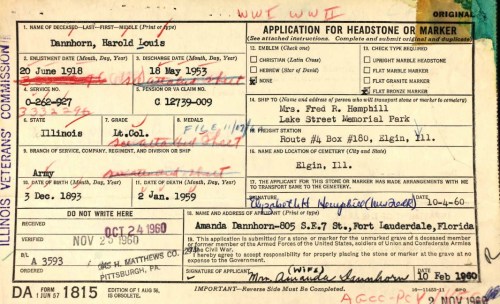 WWI WWII
ORIGINAL
ILLINOIS VETERANS' COMMISSION
1. NAME OF DECEASED—LAST—FIRST—MIDDLE (Print or type)
Dannhorn, Harold Louis
APPLICATION FOR HEADSTONE OR MARKER
(See attached instructions. Complete and submit original and duplicate)
2. ENLISTMENT DATE (Month, Day, Year)
20 June 1918
3. DISCHARGE DATE (Month, Day, Year)
18 May 1953
see attached sheet
12. EMBLEM (Check one)
CHRISTIAN (Latin Cross)
HEBREW (Star of David)
NONE
13. CHECK TYPE REQUIRED
UPRIGHT MARBLE HEADSTONE
FLAT MARBLE MARKER
FLAT GRANITE MARKER
FLAT BRONZE MARKER
4. SERVICE NO.
O-262-927
3332296
5. PENSION OR VA CLAIM NO.
C 12739-009
14. SHIP TO (Name and address of person who will transport stone or marker to cemetery)
Mrs. Fred R. Hemphill
Lake Street Memorial Park
Route #4 Box #180, Elgin, Ill.
FREIGHT STATION
6. STATE
Illinois
7. GRADE
Lt.Col.
8. MEDALS
see attached sheet
9. BRANCH OF SERVICE, COMPANY, REGIMENT, DIVISION OR SHIP
Army
see attached sheet
16. LOCATION OF CEMETERY (City and State)
Elgin, Ill.
10. DATE OF BIRTH (Month, Day, Year)
3 Dec. 1893
11. DATE OF DEATH (Month, Day, Year)
2 Jan. 1959
17. APPLICANT FOR THIS STONE OR MARKER HAS MADE ARRANGEMENTS WITH ME TO TRANSPORT SAME TO THE CEMETERY.
10-4-60
DO NOT WRITE HERE
RECEIVED
OCT 24 1960
VERIFIED
NOV 25 1960
Amanda Dannhorn-805 S.E.7 St., Fort Lauderdale, Florida
18. This application is submitted for a stone or marker for the unmarked grave of a deceased member or former member of the Armed Forces of the United States, soldiers of Union and Confederate Armies of the Civil War.
I hereby agree to accept responsibility for properly placing the stone or marker at the grave at no expense to the Government.
A 3593
JAS H. MATTHEWS CO.
PITTSBURGH, PA.
SIGNATURE OF APPLICANT
(Wife)
Mrs. Amanda Dannhorn
10 Feb 1960
DA FORM 1 JUN 57 1815
EDITION OF 1 AUG 56, IS OBSOLETE.
IMPORTANT—Reverse Side Must Be Completed
NOV
1960